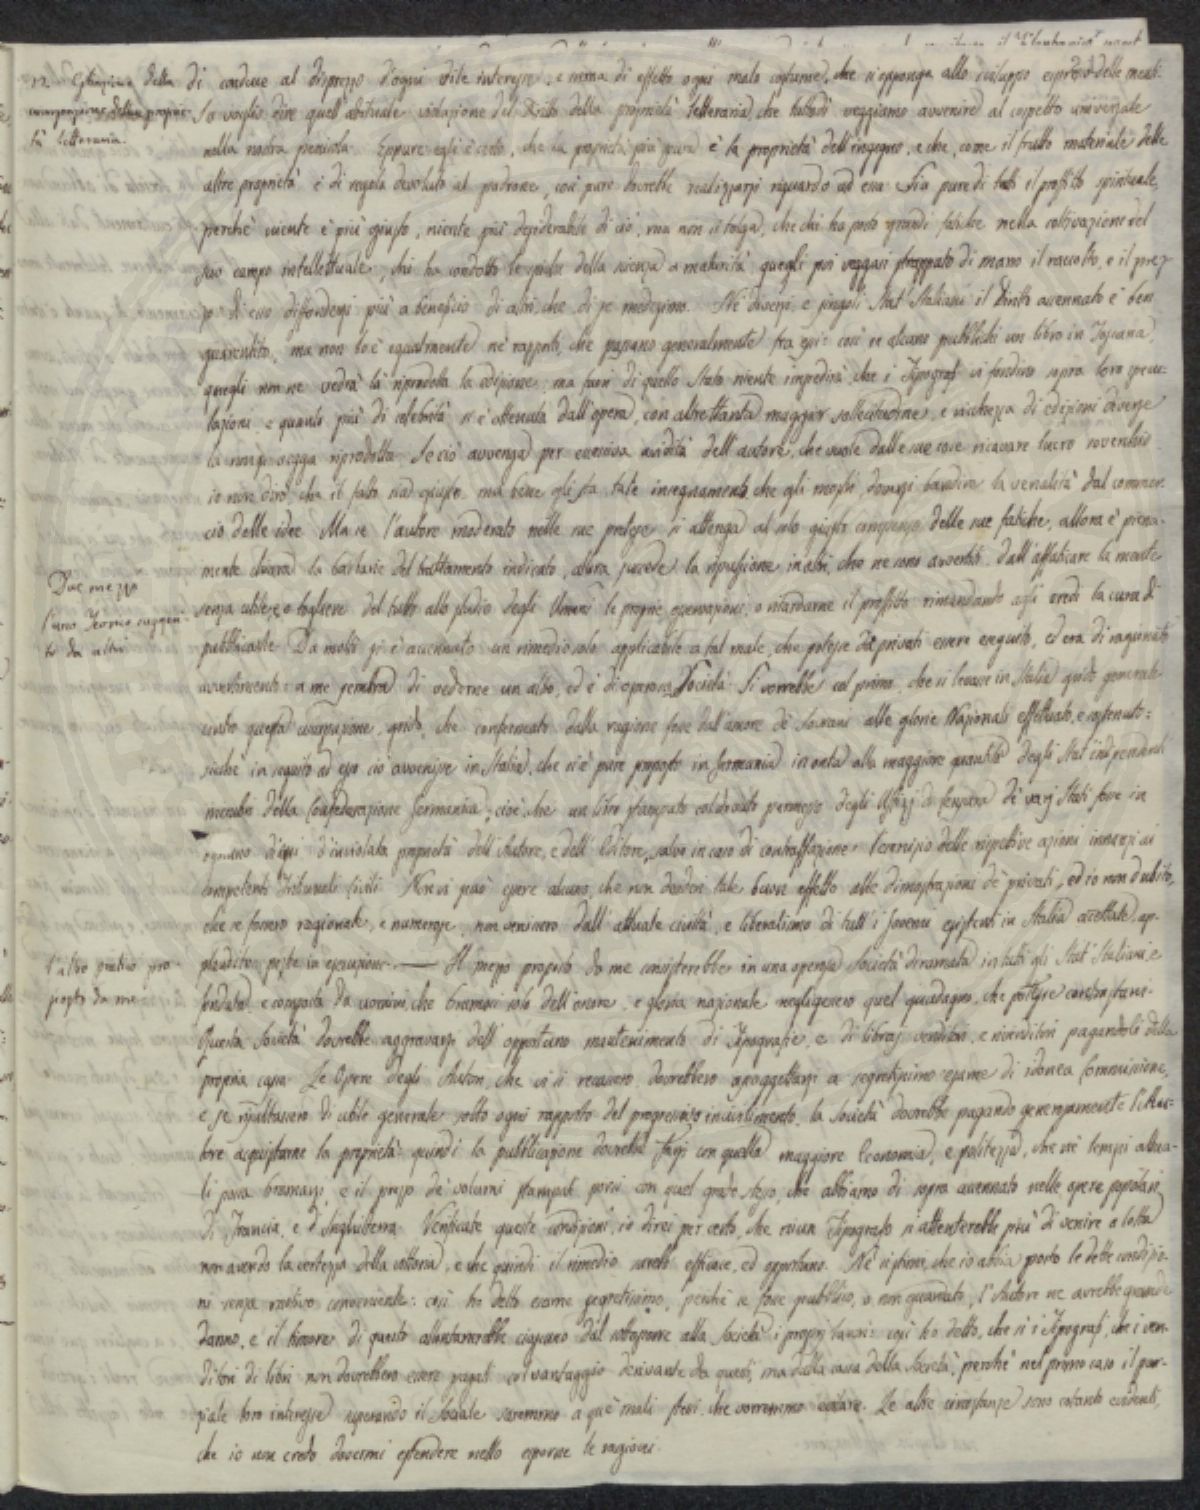 12. Estinzione della
usurpazione della proprie-
tà letteraria.
di condurre al disprezzo d'ogni vile interesse, e mina di effetto ogni malo costume, che si opponga allo sviluppo delle menti.
Io voglio dire quell'abituale violazione del diritto della proprietà letteraria, che tuttodì veggiamo avvenire al cospetto universale
nella nostra penisola. Eppure egli è certo, che la proprietà più pura è la proprietà dell'ingegno, e che, come il frutto materiale delle
altre proprietà è di regola devoluto al padrone, così pure dovrebbe realizzarsi riguardo ad essa. Sia pure di tutti il profitto spirituale,
perchè niente è più giusto, niente più desiderabile di ciò, ma non si tolga, che chi ha posto grandi fatiche nella coltivazione del
suo campo intellettuale, chi ha condotto le spiche della scienza a maturità quegli poi veggasi strappato di mano il raccolto, e il prez-
zo di esso diffondersi più a beneficio di altri, che di se medesimo. Ne' diversi e singoli Stati Italiani il diritto accennato è ben
guarentito, ma non lo è egualmente ne' rapporti, che passano generalmente tra essi: così se alcuno pubblichi un libro in Toscana,
quegli non ne vedrà là riprodotta la edizione, ma fuori di quello Stato niente impedirà, che i Tipografi vi fondino sopra loro specu-
lazioni e quanto più di celebrità si è ottenuta dall'opera, con altrettanta maggior sollecitudine, e ricchezza di edizioni diverse
la riprodotta. Se ciò avvenga per eccessiva avidità dell'autore, che vuole dalle sue cose ricavare lucro soverchio
io non dirò, che il fatto sia giusto, ma bene gli sta tale insegnamento che gli mostri doversi bandire la venalità dal commer-
cio delle idee. Ma se l'autore moderato nelle sue pretese si attenga al solo giusto compenso delle sue fatiche, allora è piena-
mente chiara la barbarie del trattamento indicato, allora succede la ripulsione in altri, che ne sono avvertiti dall'affaticare la mente
senza utile, o togliere del tutto allo studio degli Uomini le proprie osservazioni, o ritardarne il profitto rimandando agli eredi la cura di
Due mezzi
l'uno Teorico suggeri-
to da altri
pubblicarle. Da molti si è accennato un rimedio solo applicabile a tal male, che potesse da privati essere eseguito, ed era di ragionati
avvertimenti: a me sembra di vederne un altro, ed è di operosa Società. Si vorrebbe col primo, che si levasse in Italia grido generale
contro questa usurpazione, grido, che confermato dalla ragione fosse dall'amore de' Sovrani alle glorie Nazionali effettuato, e sostenuto:
sicchè in seguito ad esso ciò avvenisse in Italia, che si è pure proposto in Germania in onta alla maggiore quantità degli Stati indipendenti
membri della Confederazione Germanica; cioè che un libro stampato col dovuto permesso degli Uffizj di Censura de' varj Stati fosse in
ognuno d'essi d'inviolata proprietà dell'Autore, e dell'Editore, salvo in caso di contraffazione l'esercizio delle rispettive azioni innanzi ai
competenti Tribunali Civili. Non vi può essere alcuno, che non desideri tale buon effetto alle dimostrazioni de' privati, ed io non dubito,
che se fossero ragionate, e numerose, non venissero dall'attuale civiltà, e liberalismo di tutti i Governi esistenti in Italia accettate, ap-
l'altro pratico pro-
posto da me
plaudite, poste in esecuzione. — Il mezzo proposto da me consisterebbe in una operosa Società diramata in tutti gli Stati Italiani, e
fondata, e composta da uomini, che bramosi solo dell'onore, e gloria nazionale negligessero quel guadagno, che potesse contrastarsi.
Questa Società dovrebbe aggravarsi dell'opportuno mantenimento di Tipografie, e di libraj venditori, e rivenditori pagandoli della
propria cassa. Le Opere degli Autori, che vi si recassero, dovrebbero assoggettarsi a segretissimo esame di idonea Commissione,
e se risultassero di utile generale sotto ogni rapporto del progressivo incivilimento, la Società dovrebbe pagando generosamente l'Au-
tore acquistarne la proprietà: quindi la pubblicazione dovrebbe farsi con quella maggiore Economia, e politezza, che ne' tempi attua-
li possa bramarsi, e il prezzo de' volumi stampati porsi con quel grado stesso, che abbiamo di sopra accennato nelle opere popolari
di Francia, e d'Inghilterra. Verificate queste condizioni, io direi per certo, che niun Tipografo si attenterebbe più di venire a lotta
non avendo la certezza della vittoria, e che quindi il rimedio sarebbe efficace, ed opportuno. Nè si stimi, che io abbia posto le dette condizio-
ni senza motivo conveniente: così ho detto esame segretissimo, perchè se fosse pubblico, o non guardato, l'Autore ne avrebbe grande
danno, e il timore di questo allontanerebbe ciascuno dal sottoporre alla Società i proprj lavori: così ho detto, che sì i Tipografi, che i ven-
ditori di libri non dovrebbero essere pagati col vantaggio derivante da questi, ma dalla cassa della Società, perchè nel primo caso il par-
ziale loro interesse superando il Sociale saremmo a que' mali stessi, che vorremmo evitare. Le altre circostanze sono cotanto evidenti,
che io non credo dovermi estendere nello esporne le ragioni.